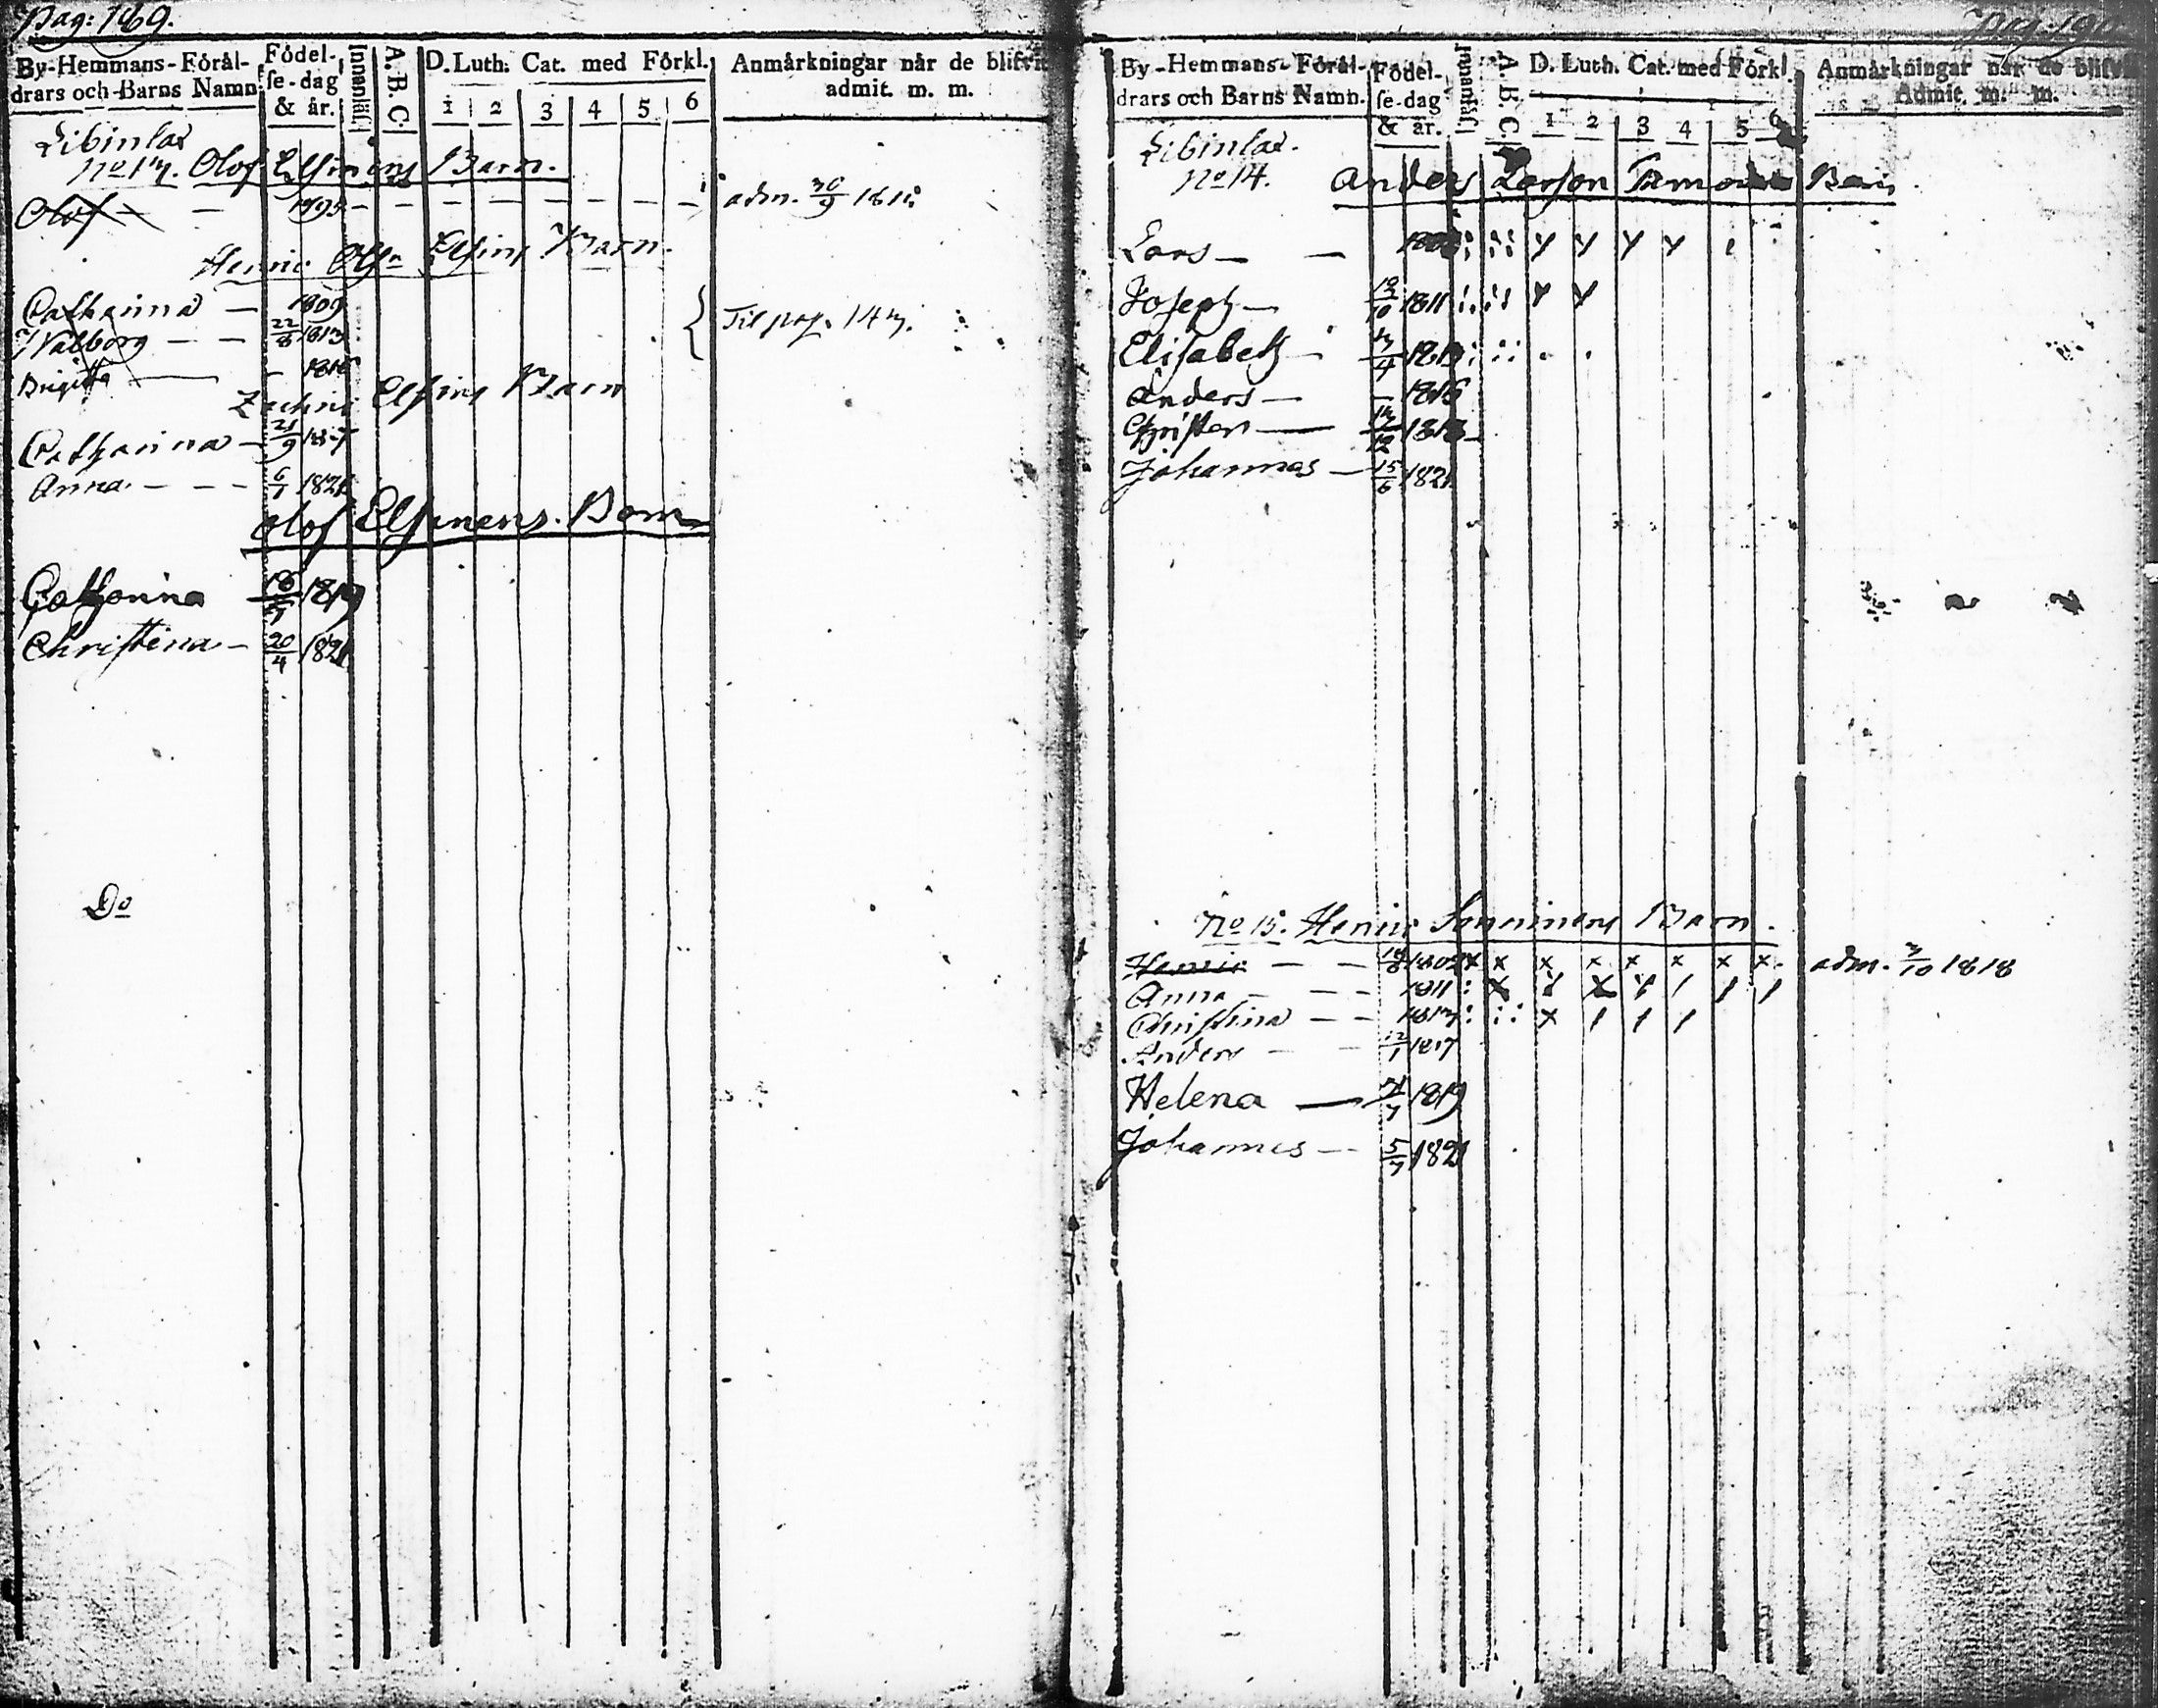 Pag: 169.
By-Hemmans-Föräl-
drars och Barns Namn.
Födel-
se-dag
& år.
Innanläs.
A. B. C.
D. Luth. Cat. med Förkl.
1 2 3 4 5 6
Anmärkningar när de blifvit
admit. m. m.
Libinlax
No 13. Olof Elfvinens Barn.
Olof — — 1795 — — — — — — — — adm. 30/9 181
Henric Olsn Elfvins Barn.
Catharina — 1809
Walborg — — 22/8 1813
Til pag. 143.
Brigitta — 1816
Elfvins Barn
Catharina — 21/9 1817
Anna — — — 6/1 1821
Olof Elfvinens Barn
Catharina 18/7 1819
Christina — 20/4 1821
Do
Pag. 190
By-Hemmans-Föräl-
drars och Barns Namn.
Födel-
se-dag
& år.
Innanläs.
A. B. C.
D. Luth. Cat. med Förkl.
1 2 3 4 5 6
Anmärkningar när de blifvit
Admit. m. m.
Libinlax.
No 14. Anders Larsson Barn
Lars — —
Joseph — 12/10 1811
Elisabeth — /4 1813
Anders — — 1816
Christer — /12 1818
Johannes — 15/6 1821
No 15. Henric Simminens Barn.
Henric — — /8 1802 x x x x x x x x adm. 3/10 1818
Anna — — — 1811
Christina — — 1813
Anders — — 12/1 1817
Helena — 21/7 1819
Johannes — 5/7 1821